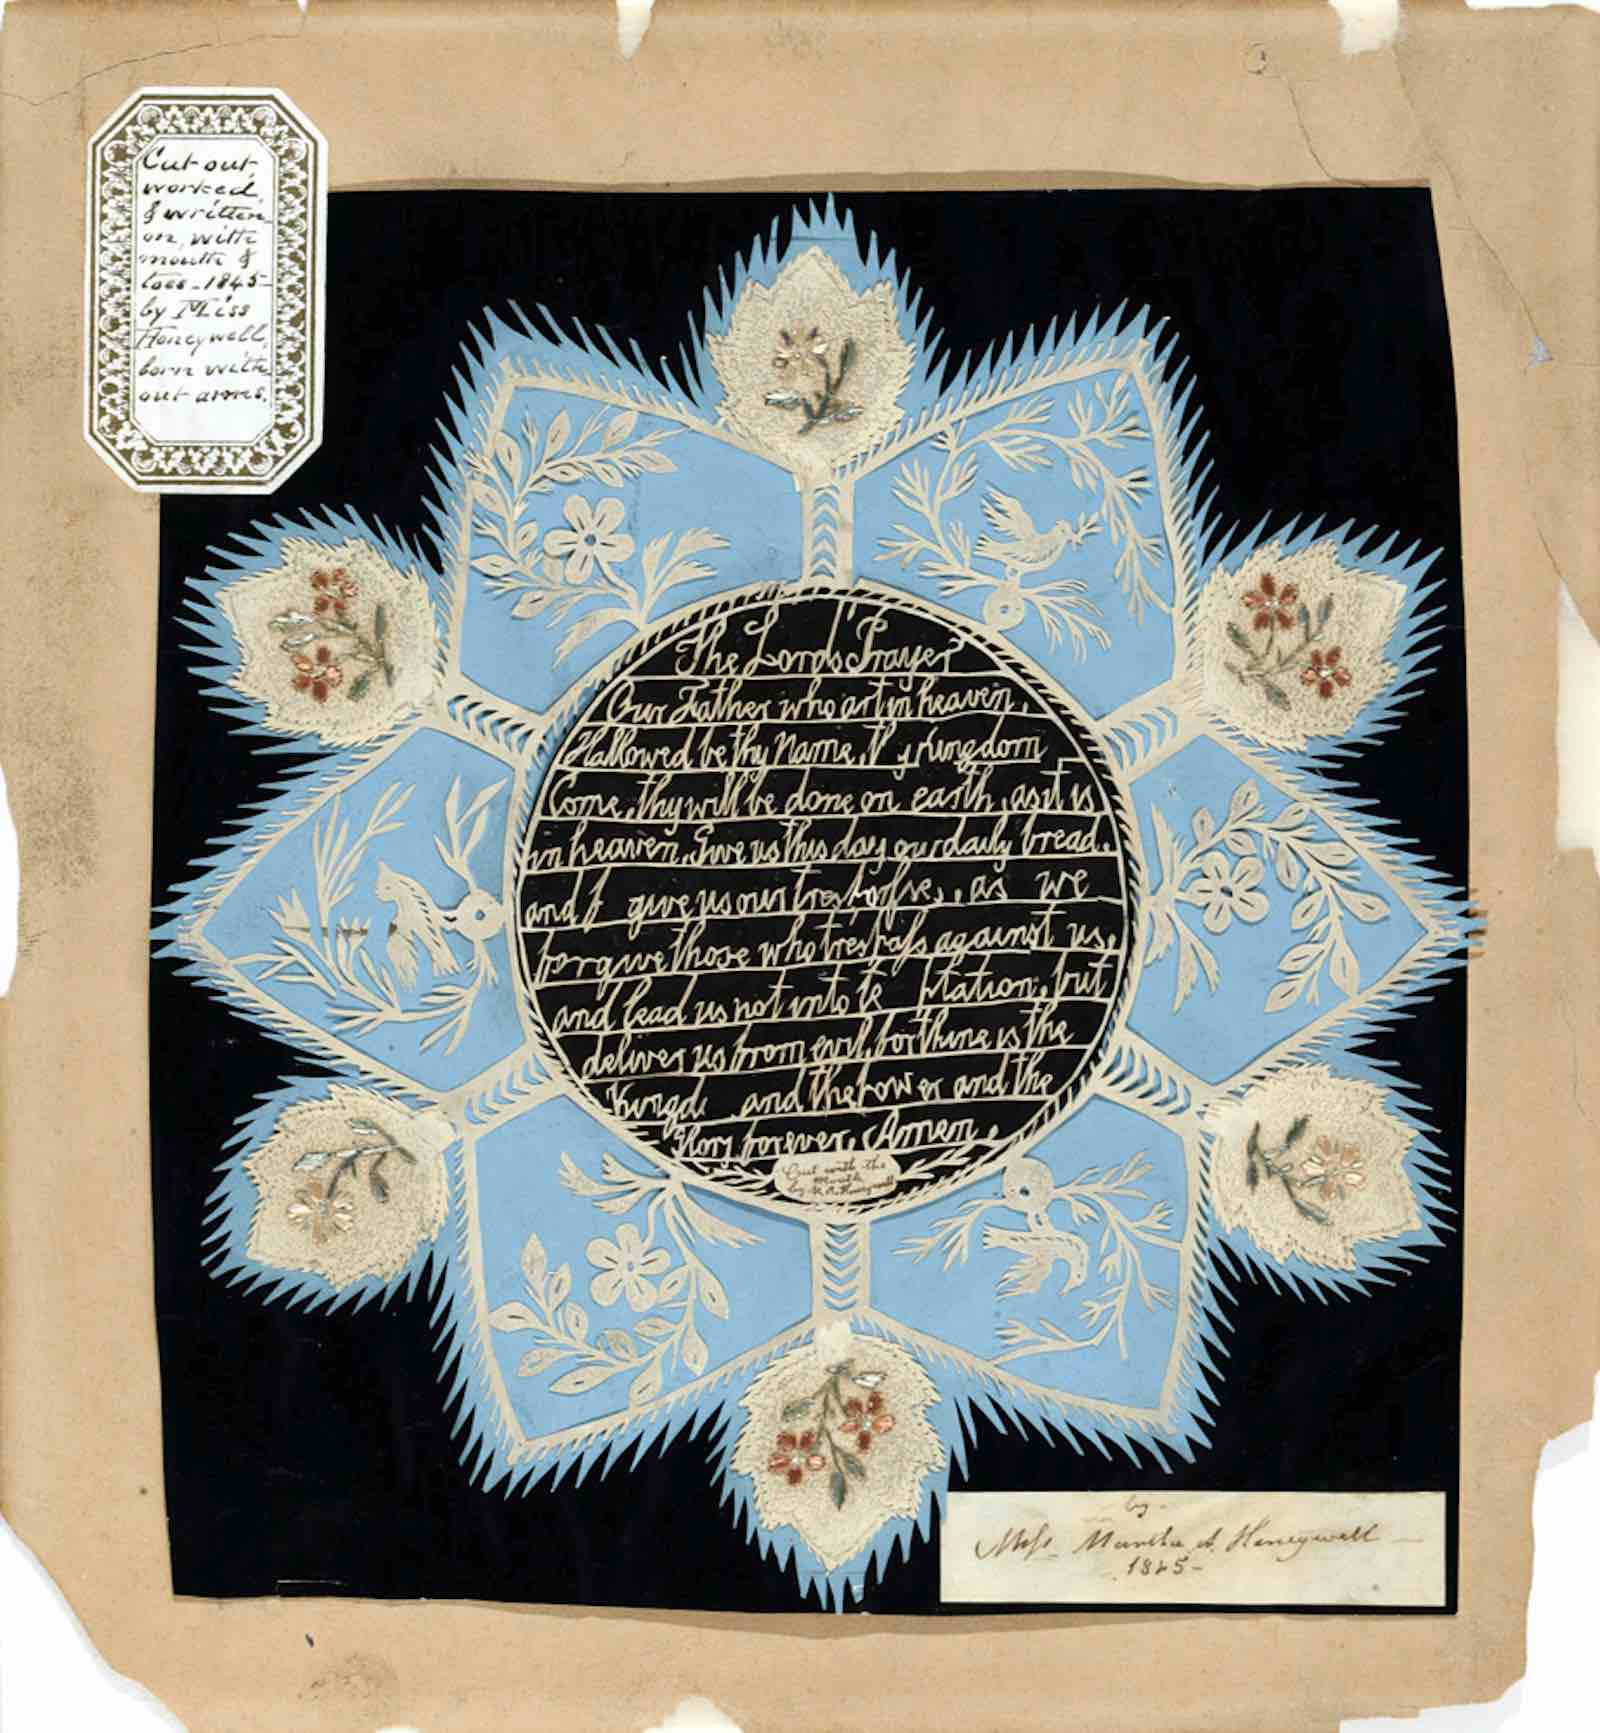 Cut out,
worked
& written
on, with
mouth &
toes - 1845 -
by Miss
Honeywell,
born with-
out arms.
The Lords Prayer
Our Father who art in heaven,
Hallowed be thy Name, thy kingdom
Come, thy will be done on earth, as it is
in heaven, Give us this day our daily bread,
and f give us our trespasses, as we
forgive those who trespass against us,
and lead us not into te ptation, but
deliver us from evil, for thine is the
Kingd and the Power and the
Glory forever, Amen,
Cut with the
Mouth
by M. A. Honeywell
by -
Miss Martha A. Honeywell -
1845 -